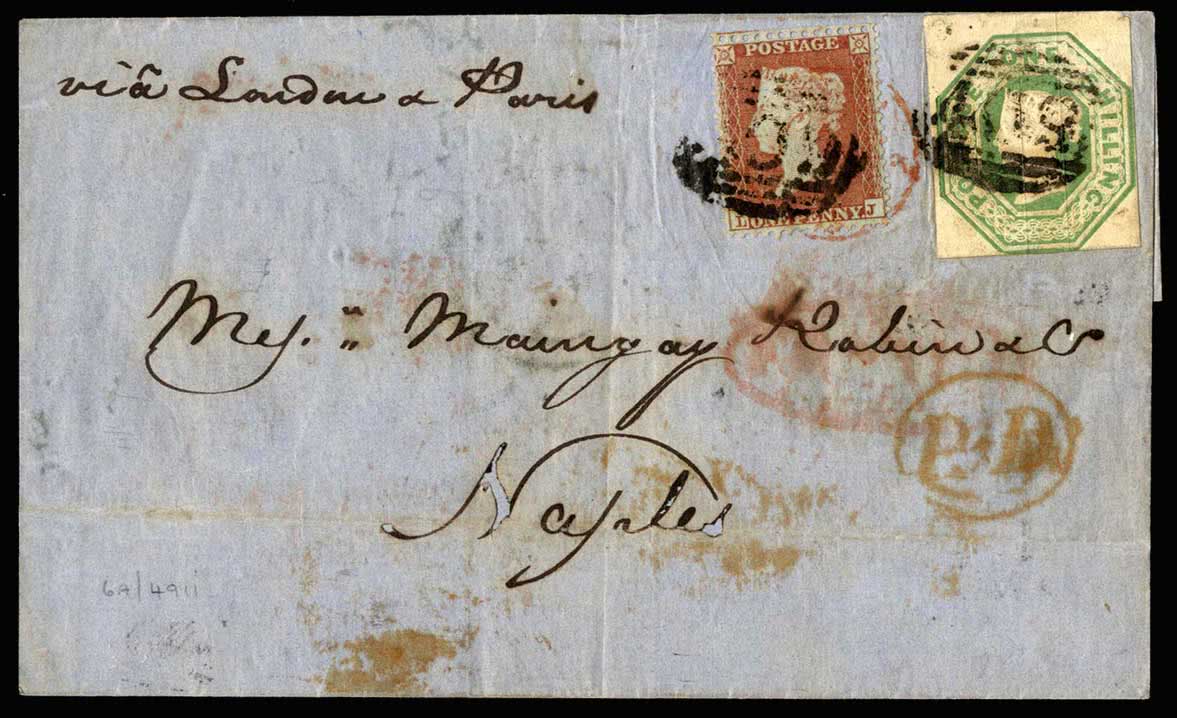 viâ London & Paris
POSTAGE
L ONE PENNY. J
POSTAGE ONE SHILLING
Mess.rs Maingay Robin & Co
P.D.
Naples
6A/4911